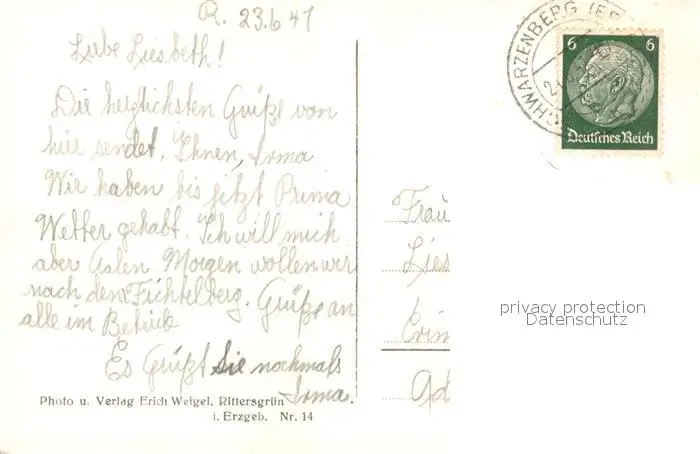 R. 23.6 41
Liebe Liesbeth!
Die herzlichsten Grüße von
hier sendet, Ihnen, Irma
Wir haben bis jetzt Prima
Wetter gehabt. Ich will mich
aber Aalen. Morgen wollen wir
nach dem Fichtelberg. Grüße an
alle im Betrieb
Es Grüßt Sie nochmals
Irma.
Photo u. Verlag Erich Weigel, Rittersgrün
i. Erzgeb. Nr. 14
SCHWARZENBERG (ER
6 6
Deutsches Reich
Frau
Lies
Crim
privacy protection
Datenschutz